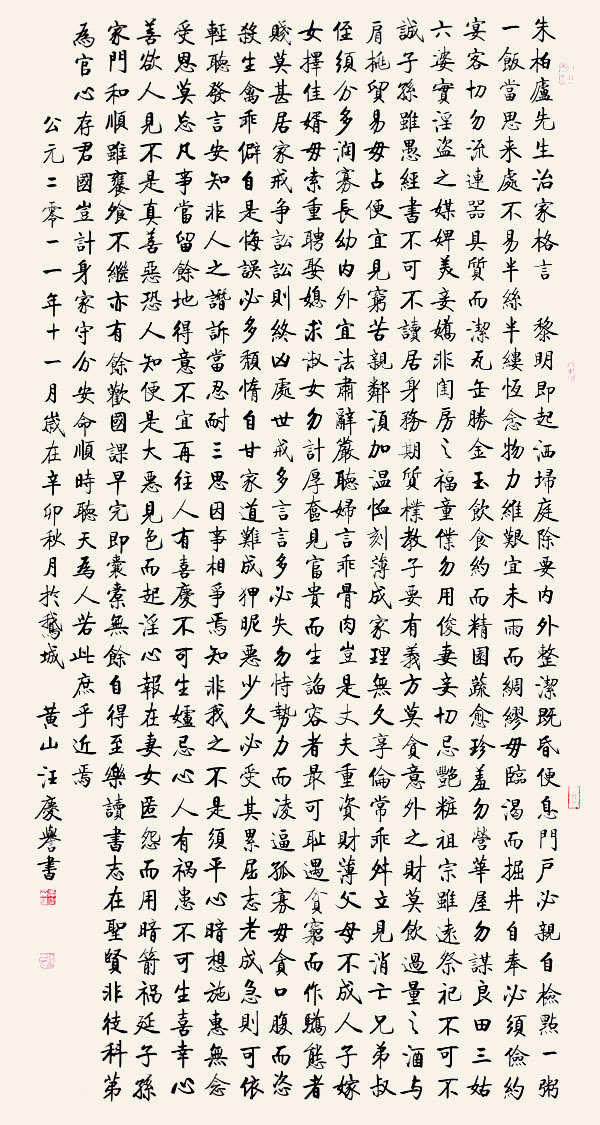 朱柏廬先生治家格言　黎明即起洒埽庭除要内外整潔既昏便息門户必親自檢點一粥
一飯當思来處不易半絲半縷恆念物力維艱宜未雨而綢繆毋臨渴而掘井自奉必須儉約
宴客切勿流連器具質而潔瓦缶勝金玉飲食約而精園蔬愈珍羞勿營華屋勿謀良田三姑
六婆實淫盜之媒婢美妾嬌非閨房之福童僕勿用俊妻妾切忌艷粧祖宗雖遠祭祀不可不
誠子孫雖愚經書不可不讀居身務期質樸教子要有義方莫貪意外之財莫飲過量之酒与
肩挑貿易毋占便宜見窮苦親鄰須加温恤刻薄成家理無久享倫常乖舛立見消亡兄弟叔
侄須分多润寡長幼内外宜法肅辭嚴聽婦言乖骨肉豈是丈夫重資財薄父母不成人子嫁
女擇佳婿毋索重聘娶媳求淑女勿計厚奩見富貴而生諂容者最可耻遇貧窮而作驕態者
賤莫甚居家戒争訟訟則終凶處世戒多言言多必失勿恃勢力而凌逼孤寡毋貪口腹而恣
殺生禽乖僻自是悔誤必多頹惰自甘家道難成狎昵惡少久必受其累屈志老成急則可依
輕聽發言安知非人之譖訴當忍耐三思因事相爭焉知非我之不是須平心暗想施惠無念
受恩莫忘凡事當留餘地得意不宜再往人有喜慶不可生嫉忌心人有祸患不可生喜幸心
善欲人見不是真善惡恐人知便是大惡見色而起淫心報在妻女匿怨而用暗箭祸延子孫
家門和順雖饔飧不繼亦有餘歡國課早完即囊橐無餘自得至樂讀書志在聖賢非徒科第
為官心存君國豈計身家守分安命順時聽天為人若此庶乎近焉
公元二零一一年十一月歲在辛卯秋月於鵝城　黄山汪慶譽書